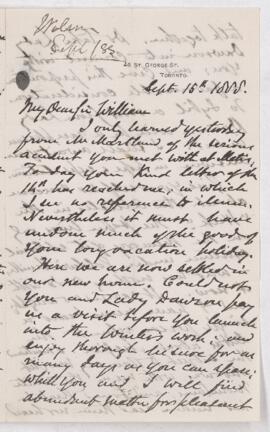 Wilson
Sept /88
28 ST. GEORGE ST.
TORONTO.
Sept. 15th 1888.
My Dear Sir William
I only learned yesterday
from Mr Marsland of the serious
accident you met with at Metis.
Today your kind letter of the
14th has reached me, in which
I see no reference to illness.
Nevertheless it must have
undone much of the good of
your long vacation holiday.
Here we are now settled in
our new home. Could not
You and Lady Dawson pay
us a visit before you launch
into the Winters work; and
enjoy thorough leisure for as
many days as you can spare;
while you and I will find
abundant matter for pleasant